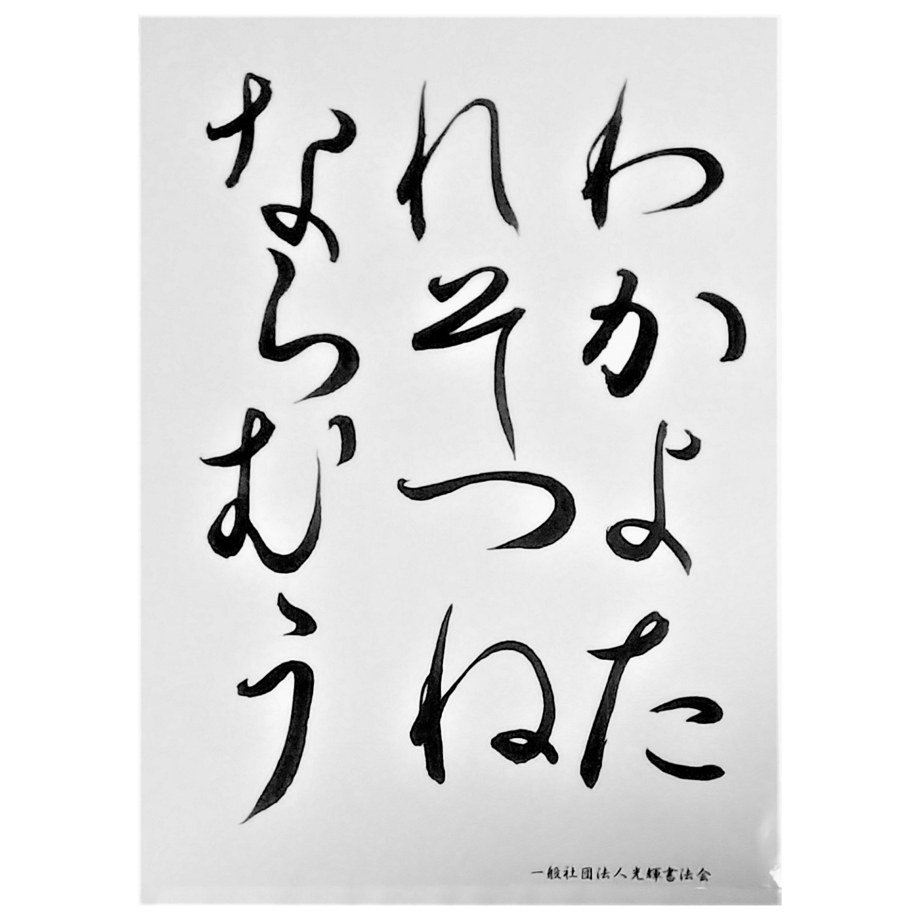 わかよた
れそつね
ならむう
一般社団法人光輝書法会